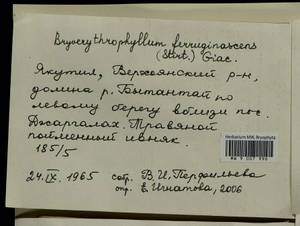 Bryoerythrophyllum ferruginascens
(Stirt.) Giac.
Якутия, Верхоянский р-н,
долина р. Бытантай по
левому берегу вблизи пос.
Джаргалах. Травяной
пойменный ивняк.
185/5
Herbarium MW, Bryophyta
MW 9 007 990
24.IX.1965 собр. В.И. Перфильева
опр. Е. Игнатова, 2006